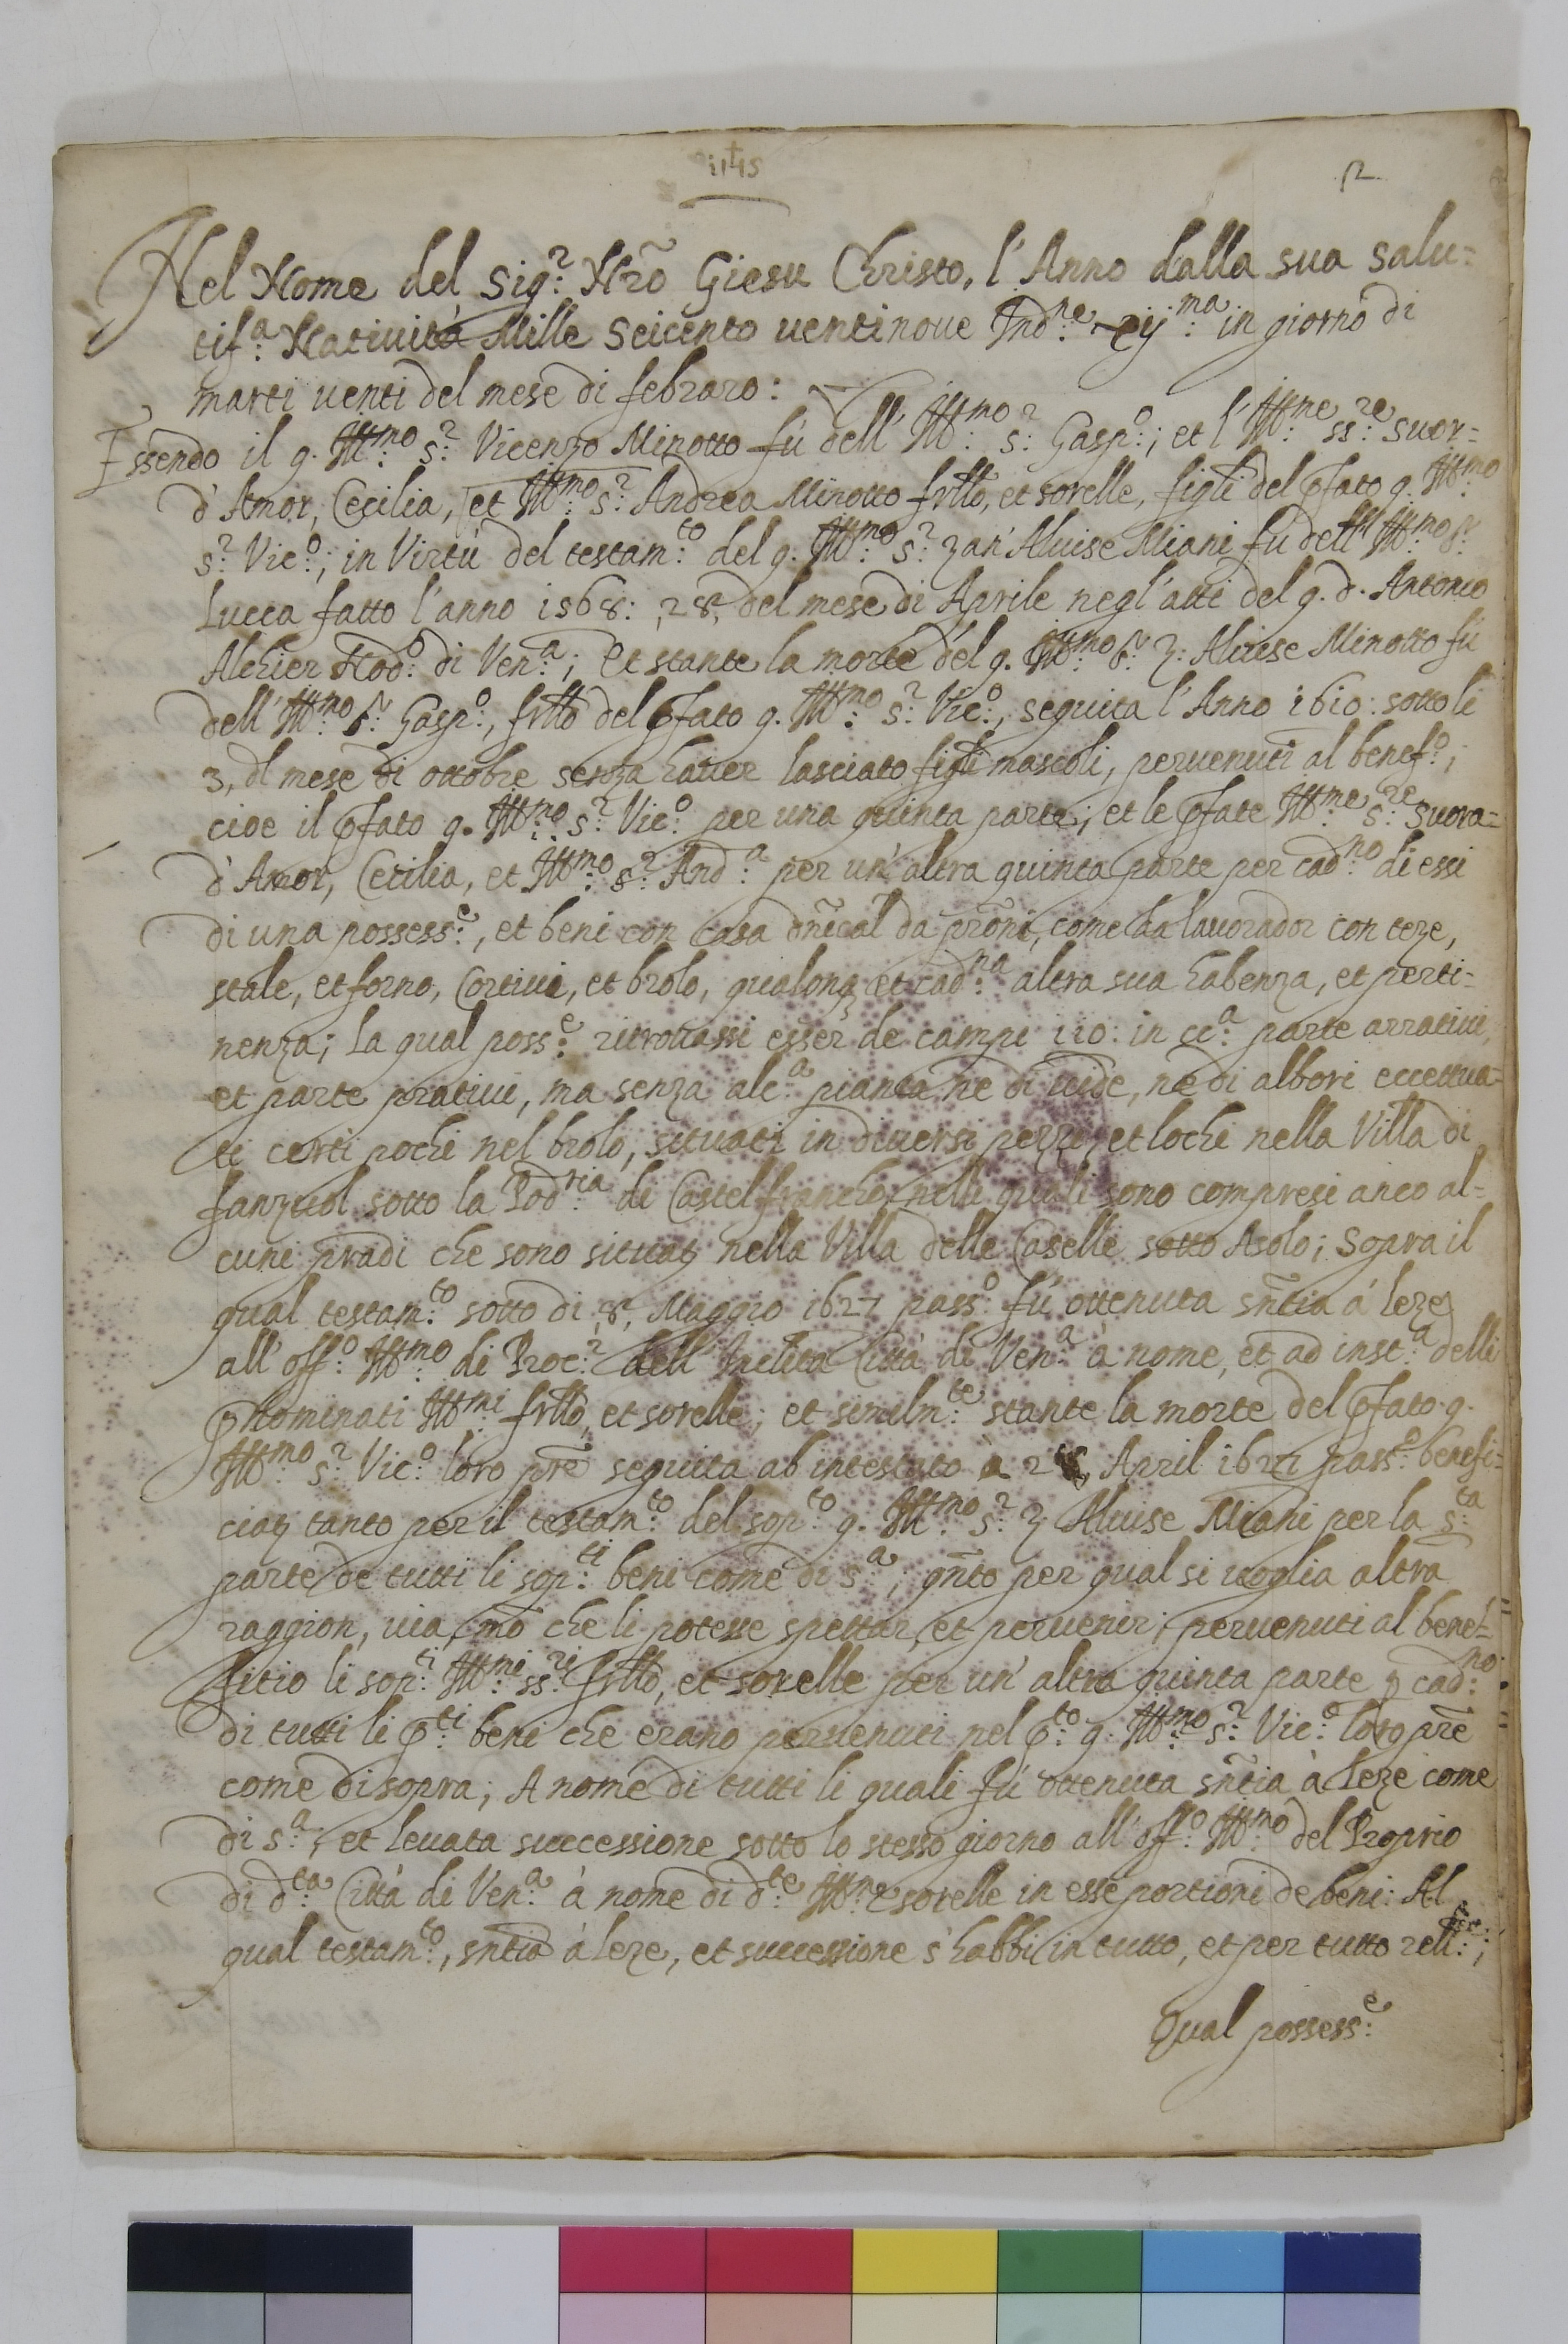 2
Nel Nome del Sig:r Nrõ Giesu Christo, l'Anno dalla sua salu=
tif:a Natività Mille Seicento uentinoue Ind:ne xij:ma in giorno di
marti uenti del mese di febraro:
Essendo il q. Ill:mo s:r Vicenzo Minotto fù dell' Ill:mo s:r Gasp:o; et l' Ill:me ss:re suor=
d'Amor, Cecilia, et Ill:mo s:r Andrea Minotto frllõ, et sorelle, figli del pfato q. Ill:mo
s:r Vic:o; in Virtù del testam:to del q. Ill:mo s:r Zan' Aluise Miani fù dell' Ill:mo s:r
Lucca fatto l'anno 1568: ,28, del mese di Aprile negl'atti del q. d. Antonio
Alchier Nod:o di Ven:a; Et stante la morte del q. Ill:mo s:r Z: Aluise Minotto fù
dell' Ill:mo s:r Gasp:o, frllõ del pfato q. Ill:mo s:r Vic:o, seguita l'Anno 1610: sotto li
3, dl mese di ottobre senza hauer lasciato figli mascoli, peruenuti al benef:o;
cioe il pfato q. Ill:mo s:r Vic:o per una quinta parte; et le pfate Ill:me s:re suora=
d'Amor, Cecilia, et Ill:mo s:r And:a per un' altra quinta parte per cad:no di essi
di una possess:e, et beni con casa dñical da prõni, come da lauorador con teze,
stale, et forno, Cortiui, et brolo, qualonq et cad:na altra sua habenza, et perti=
nenza; La qual poss:e ritrouassi esser de campi 110: in cc:a parte arratiui,
et parte pratiui, ma senza alc:a pianta ne di uide, ne di albori eccettua=
ti certi pochi nel brolo, situati in diuersi pezzi, et lochi nella Villa di
fanzuol sotto la Pod:ria di Castelfrancho, nelli quali sono compresi anco al=
cuni pradi che sono situati nella Villa delle Caselle sotto Asolo; Sopra il
qual testam:to sotto di ,8, Maggio 1627 pass:o fù ottenuta sñtia á leze
all' off:o Ill:mo di Proc:r dell' Inclita Città di Ven:a à nome, et ad inst:a delli
pnominati Ill:mi frllõ, et sorelle; et similm:te stante la morte del pfato q.
Ill:mo s:r Vic:o loro prẽ seguita ab intestato à April 1627 pass:o benefi=
ciati tanto per il testam:to del sop:to q. Ill:mo s:r Z Aluise Miani per la s:ta
parte de tutti li sop:ti beni come di s:a; qñto per qual si uoglia altra
raggion, uia, mõ che li potesse spettar, et peruenir; peruenuti al bene=
fitio li sop:ti Ill:mi ss:ri frllõ, et sorelle per un' altra quinta parte p cad:no
di tutti li p:ti beni che erano peruenuti nel p:to q. Ill:mo s:r Vic:o loro prẽ
come di sopra; A nome di tutti li quali fù ottenuta sñtia à leze come
di s:a; et leuata successione sotto lo stesso giorno all' off:o Ill:mo del Proprio
di d:ta Città di Ven:a à nome di d:te Ill:me sorelle in esse portioni de beni: Al
qual testam:to, sñtia à leze, et successione s'habbi in tutto, et per tutto rell:ne;
Qual possess:e